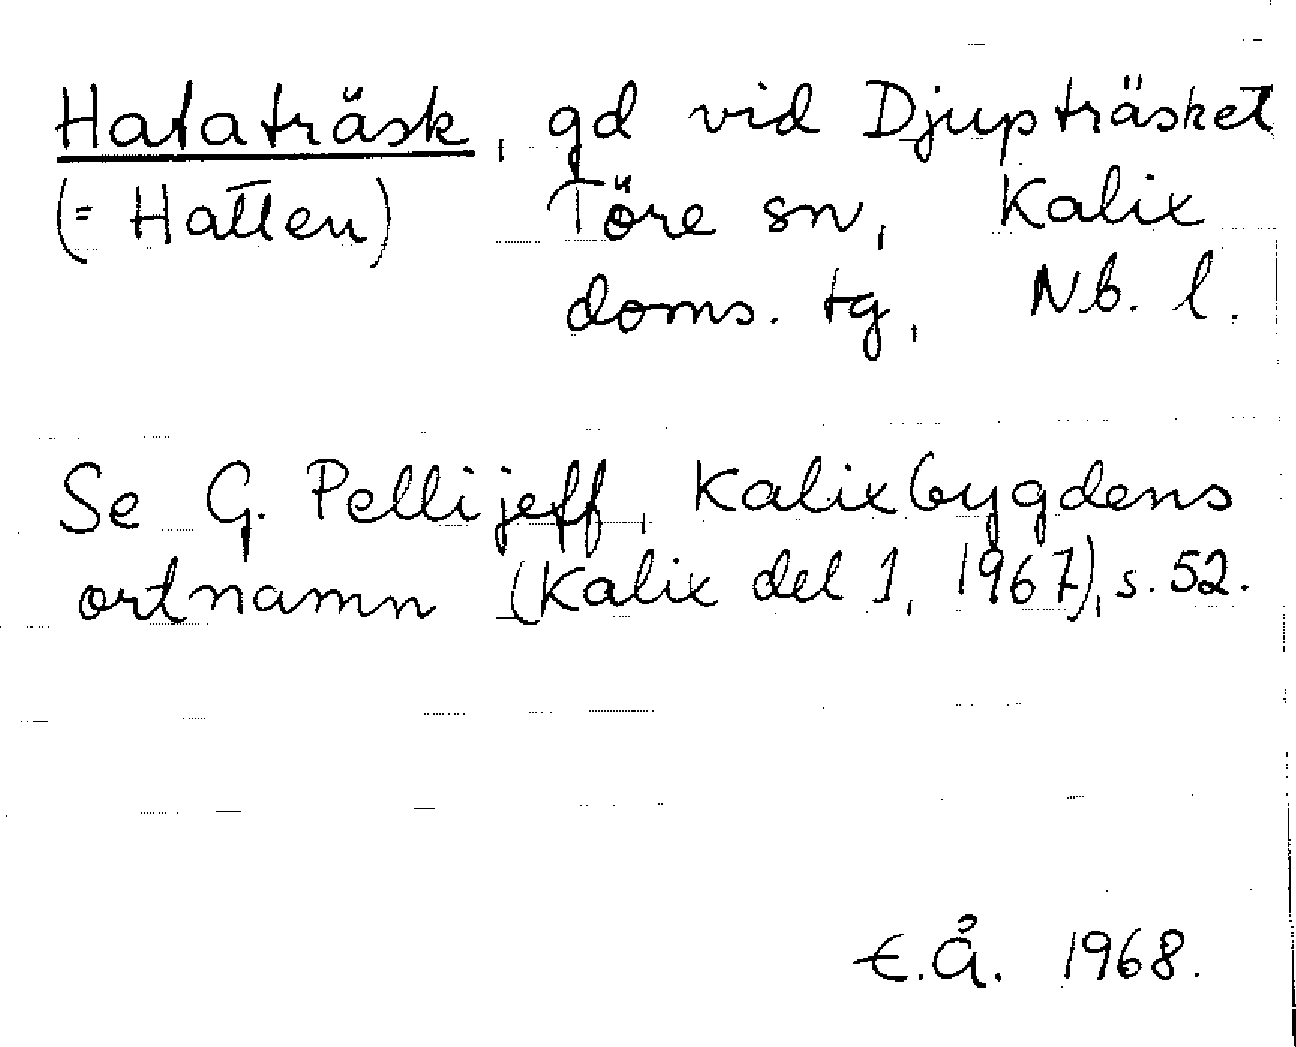 Hataträsk, gd vid Djupträsket
(= Hatten) Töre sn, Kalix
doms. tg, Nb. l.
Se G. Pellijeff, Kalixbygdens
ortnamn (Kalix del 1, 1967), s. 52.
E.Å. 1968.